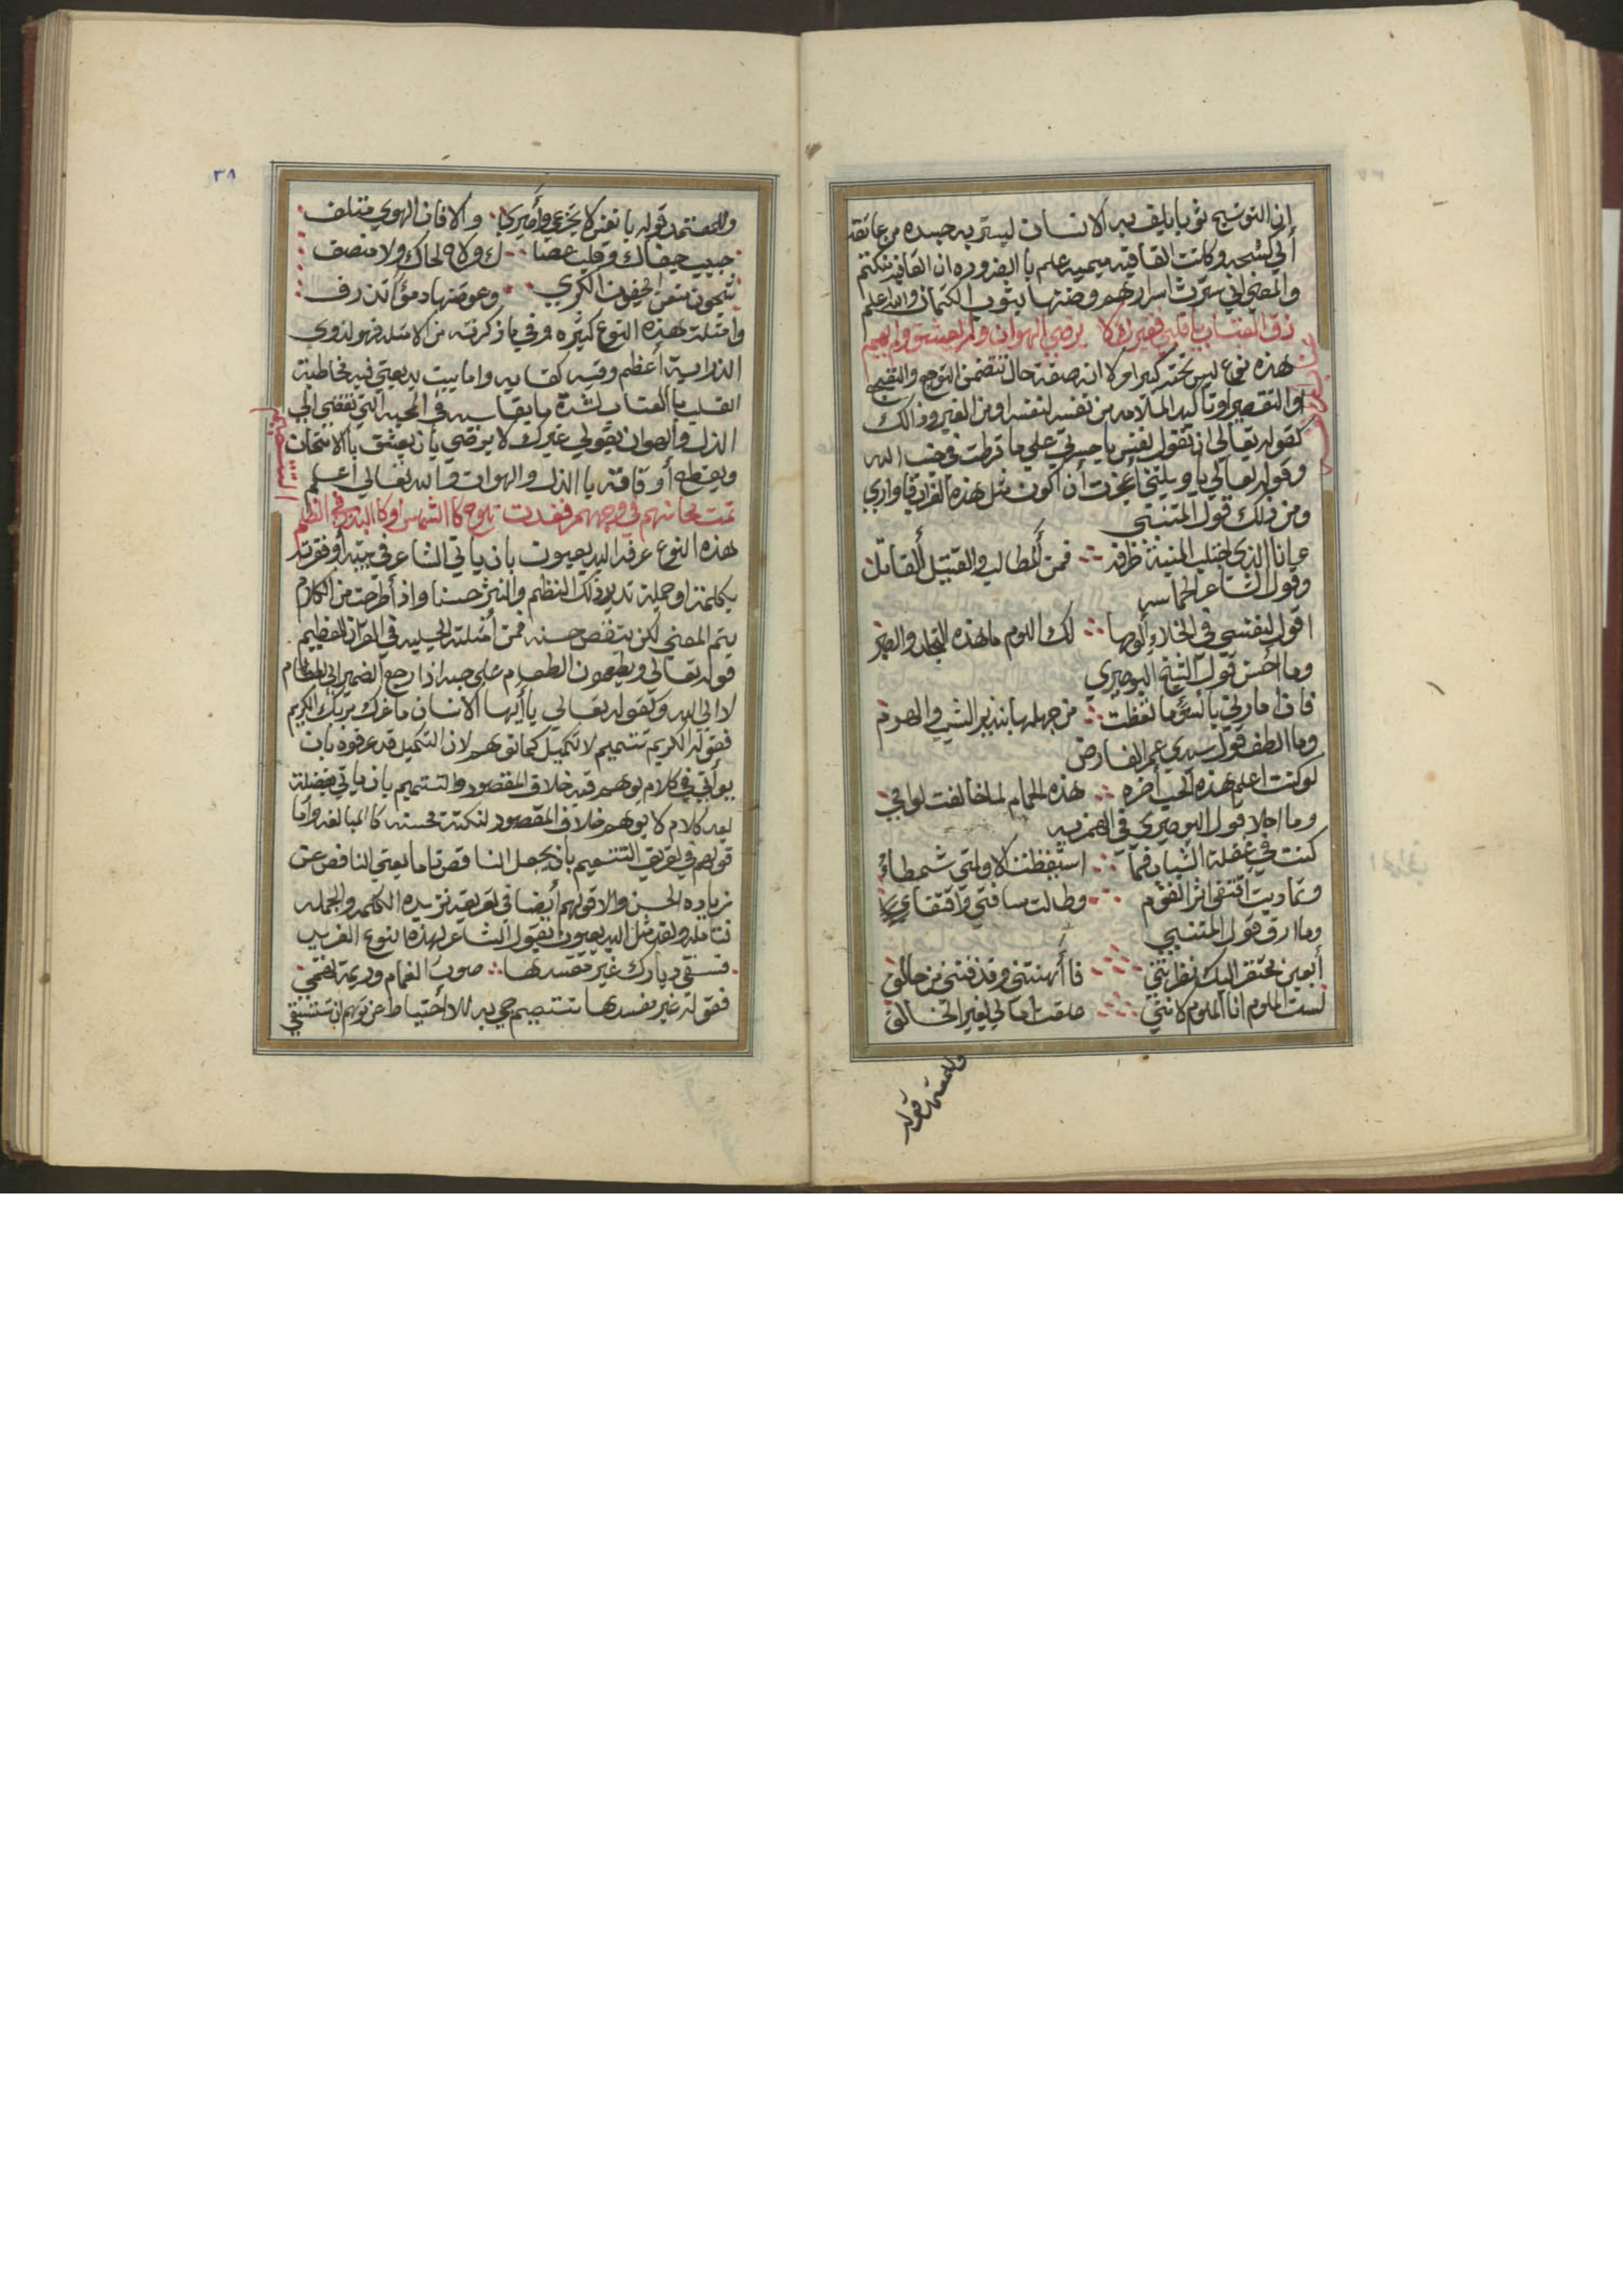 ان التوشيح ثوبا يلف به الانسان ليستر به جسده من عاتقه
الي كشحه وكانت القافيه ميميه علم با الضروره ان القافيه تنكتم
والمعني اني سترت اسرارهم وصنتها بثوب الكتمان والله اعلم
ذق العتاب يا قلبي فغيرك لا يرضي الهوان ولم يعشق ولم يهم
هذه نوع ليس تحته كبير امر لا انه صفة حال تتضمن التوجع والتقبيح
او التقصير وتأكيد الملامه من نفسه لنفسه او من الغير وذالك
كقوله تعالي ان تقول نفس يا حسرتي علي ما فرطت في جنب الله
وقوله تعالي يا ويلتي أعجزت أن أكون مثل هذه الغراب فاواري
ومن ذلك قول المتنبي
وانا الذي اجتلب المنية طرفه فمن ألمطالب والقتيل ألقاتل
وقول الشاعر الحماسي
اقول لنفسي في الخلاء ألومها لك الويل ما هذه التجلد والصبر
وما احسن قول الشيخ البوصيري
فان امارتي بالسوء ما اتعظت من جهلها بنذير الشيب والهرم
وما الطف قول سيدي عمر الفارض
لو كنت اعلم هذه الحب أخره هذه الحمام لما خالفت لوامي
وما احلا قول البوصيري في الهمزيه
كنت في غفلة الشباب فما استيقظت الا ولمتي شمطاء
وتماديت اقتفي اثر القوم وطالت مسافتي واقتفاي
وما ارق قول المتنبي
أبعين مفتقر اليك نظرتني فأهنتني وقذفتني من حالق
لست الملوم انا الملوم لانني علقت امالي لغير الخالق
والمعتمد قوله
٣٨
والمعتمد قوله يا نفس لا تجزعي وأصبري والا فان الهوي متلف
حبيب جفاك وقلب عصاك ولاح لحاك ولا منصف
شجون منعن الجفون الكري وعوضنها دمعا تذرف
وامثلة هذه النوع كثيره وفي ما ذكرته من الامثله فهو لذوي
الدراية أعظم وفيه كفايه واما بيت بديعيتي فيه مخاطبة
القلب با العتاب لشدة ما يقاسيه في المحبه التي تفضي الي
الذل والهوان بقولي غيرك لا يرضي بان يعشق با الامتحان
ويقطع أوقاته با الذل والهوان والله تعالي أعلم
تمت محاسنهم في وجههم فغدت تلوح كا الشمس او كا البدر في الظلم
هذه النوع عرفه البديعيون بان ياتي الشاعر في بيته أو فقرته
بكلمة او جملة تزيد ذلك النظم والنثر حسنا واذ أطرحت من الكلام
يتم المعني لكن ينقص حسنه فمن أمثلته الجليه في القرآن العظيم
قوله تعالي ويطعمون الطعام علي حبه اذا رجع الضمير الي الطعام
لا الي الله وكقوله تعالي يا أيها الانسان ما غرك بربك الكريم
فقوله الكريم تتميم لا تكميل كما توهم لان التكميل قد عرفوه بان
يوأتي في كلام يوهم فيه خلاف المقصود والتتميم بان ياتي بفضلة
بعد كلام لا يوهم خلاف المقصود لنكتة محسنه كا المبالغه وأما
قولهم في تعريف التتميم بان يجعل الناقص تاما يعني الناقص عن
زياده الحسن والا قولهم أيضا في تعريفه تزيده الكلمه والجمله
فتأمله ولقد مثل البديعيون بقول الشاعر لهذه النوع الغريب
فسقي ديارك غير مفسدها صوب الغمام وديمة تهمي
فقوله غير مفسدها تتميم جي به للاحتياط عن توهم ان تستسقي
التتميم